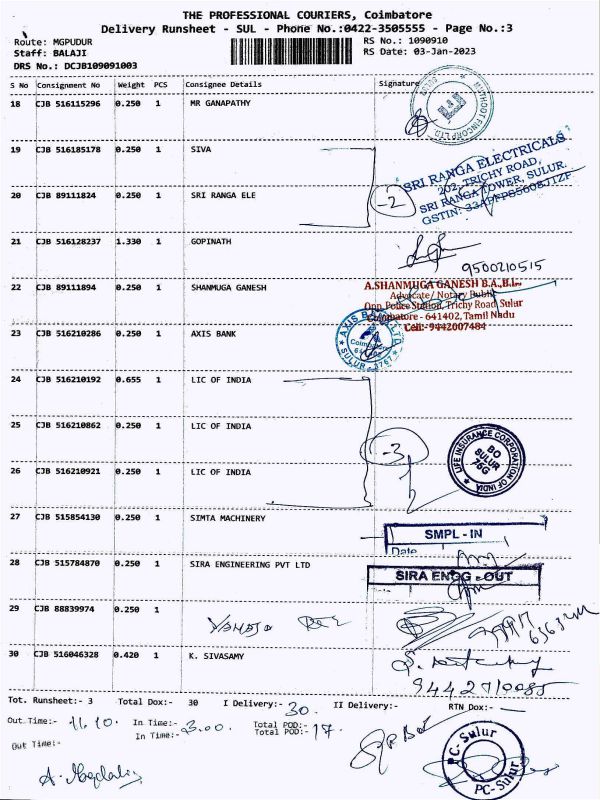 THE PROFESSIONAL COURIERS, Coimbatore
Delivery Runsheet - SUL - Phone No.:0422-3505555 - Page No.:3
Route: MGPUDUR
RS No.: 1090910
Staff: BALAJI
RS Date: 03-Jan-2023
DRS No.: DCJB109091003
S No Consignment No Weight PCS Consignee Details Signature
18 CJB 516115296 0.250 1 MR GANAPATHY
MUTHOOT FINCORP LTD
19 CJB 516185178 0.250 1 SIVA
SRI RANGA ELECTRICALS
202, TRICHY ROAD,
SRI RANGA TOWER, SULUR.
20 CJB 89111824 0.250 1 SRI RANGA ELE
-2
21 CJB 516128237 1.330 1 GOPINATH
9500210515
22 CJB 89111894 0.250 1 SHANMUGA GANESH
A.SHANMUGA GANESH B.A.,B.L.,
Advocate/ Notary Public
Opp. Police Station, Trichy Road, Sulur
Coimbatore - 641402, Tamil Nadu
Cell:- 9442007484
23 CJB 516210286 0.250 1 AXIS BANK
AXIS BANK LTD
Coimbatore
SULUR - 3767
24 CJB 516210192 0.655 1 LIC OF INDIA
25 CJB 516210862 0.250 1 LIC OF INDIA
-3
LIFE INSURANCE CORPORATION OF INDIA
BO
SULUR
76G
26 CJB 516210921 0.250 1 LIC OF INDIA
27 CJB 515854130 0.250 1 SIMTA MACHINERY
SMPL - IN
Date
28 CJB 515784870 0.250 1 SIRA ENGINEERING PVT LTD
SIRA ENGG - OUT
29 CJB 88839974 0.250 1
30 CJB 516046328 0.420 1 K. SIVASAMY
9442710085
Tot. Runsheet:- 3 Total Dox:- 30 I Delivery:- 30. II Delivery:- RTN Dox:-
Out Time:- 11.10. In Time:- 3.00. Total POD:- 17.
In Time:- Total POD:-
Out Time:-
PC-Sulur
PC-Sulur